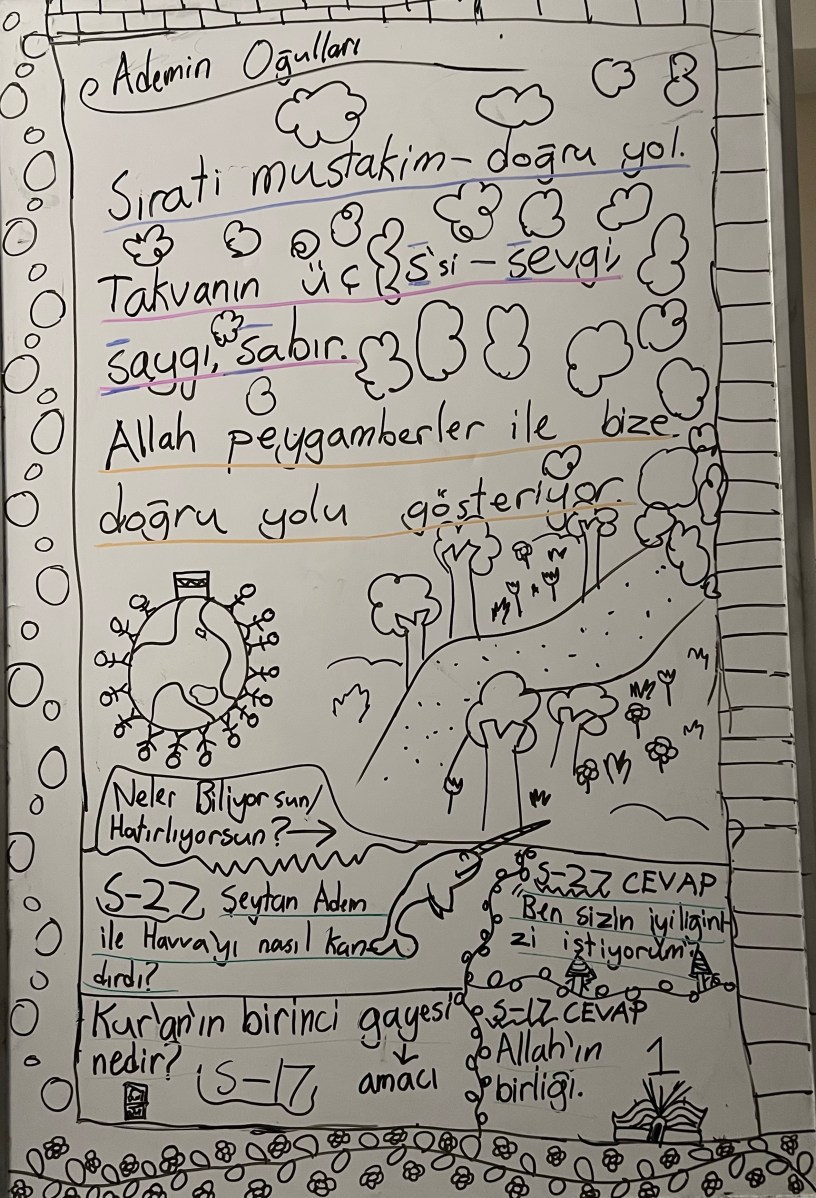 Ademin Oğulları
Sırati mustakim - doğru yol.
Takvanın üç S'si - sevgi,
saygı, sabır.
Allah peygamberler ile bize
doğru yolu gösteriyor.
Neler Biliyorsun/
Hatırlıyorsun? →
S-27 Şeytan Adem
ile Havva'yı nasıl kan-
dırdı?
S-27 CEVAP
"Ben sizin iyiliğini-
zi istiyorum".
Kur'an'ın birinci gayesi
nedir? S-17
↓
amacı
S-17 CEVAP
Allah'ın
birliği.
1